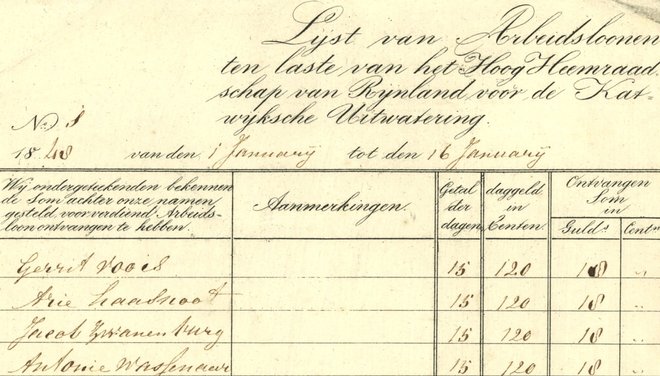 Lijst van Arbeidsloonen
ten laste van het Hoog Heemraad
schap van Rynland voor de Kat-
wyksche Uitwatering.
No. 1
1848 van den 1 Januarij tot den 16 Januarij
Wij ondergeteekenden bekennen
de Som achter onze namen
gesteld, voor verdiend Arbeids-
loon ontvangen te hebben.
Aanmerkingen.
Getal
der
dagen
daggeld
in
Centen.
Ontvangen
Som
in
Guld.s
Cent.n
Gerrit Voois 15 120 18 ,,
Arie Haasnoot 15 120 18 ,,
Jacob Zwanenburg 15 120 18 ,,
Antonie Wassenaar 15 120 18 ,,